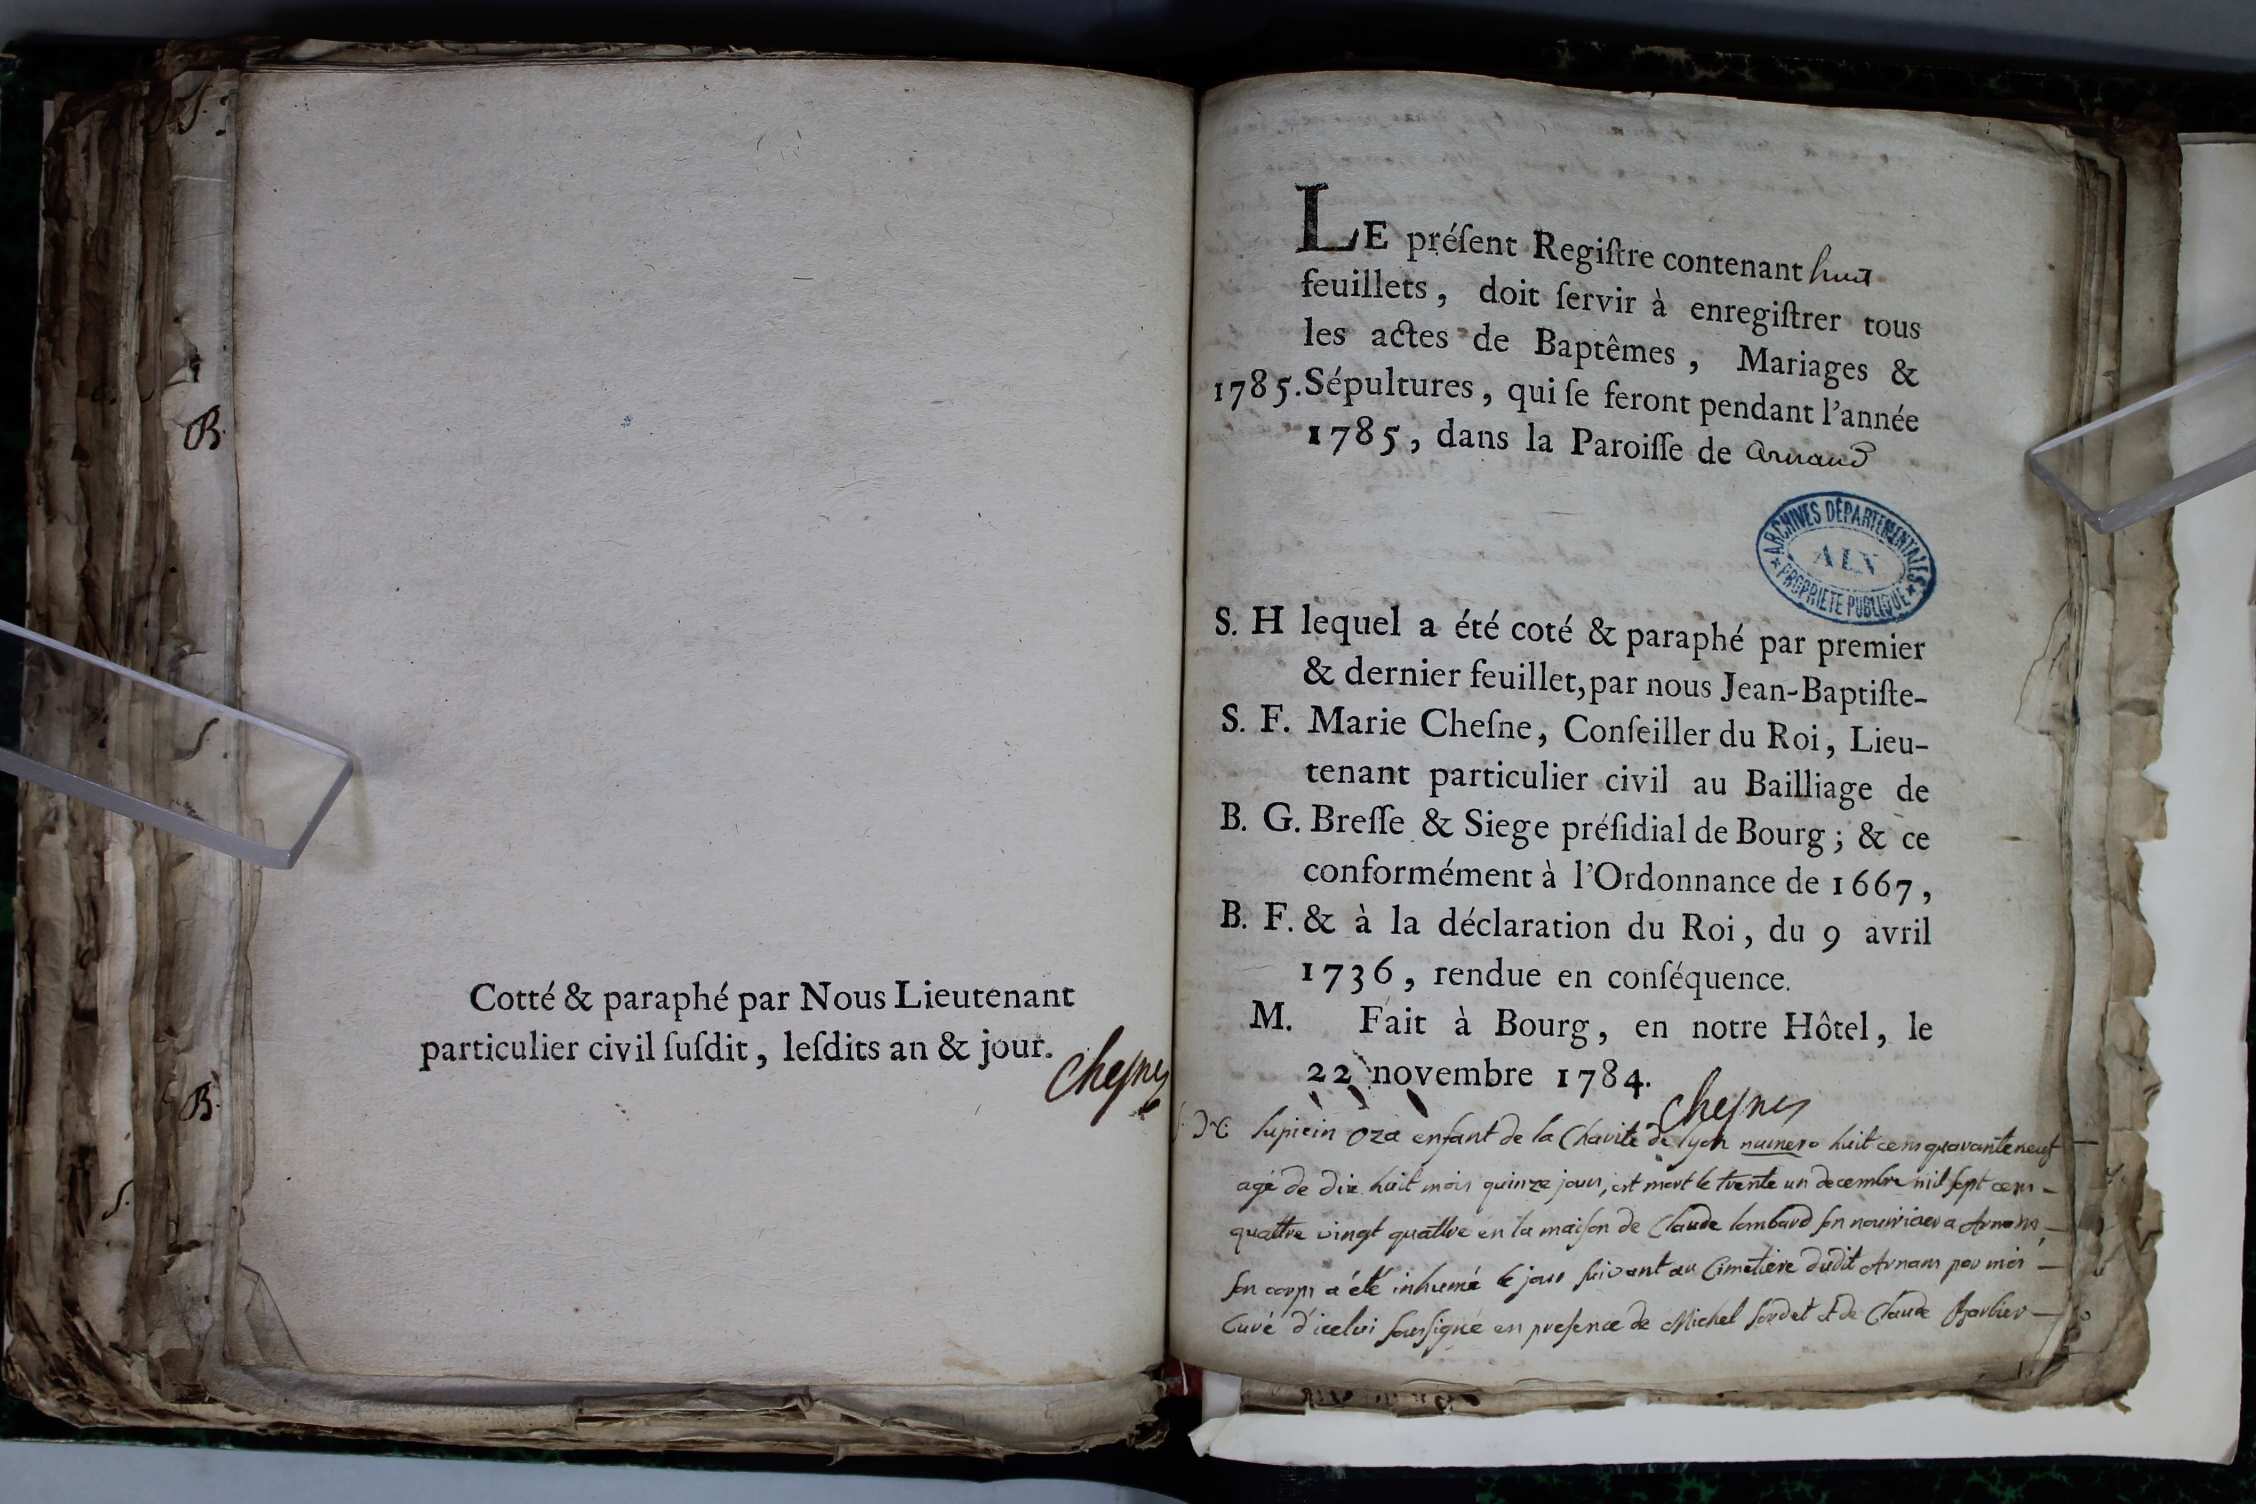 B.
B.
Cotté & paraphé par Nous Lieutenant
particulier civil ſuſdit, leſdits an & jour.
Cheſne
LE préſent Regiſtre contenant huit
feuillets, doit ſervir à enregiſtrer tous
les actes de Baptêmes, Mariages &
1785. Sépultures, qui ſe feront pendant l'année
1785, dans la Paroiſſe de Arnand
ARCHIVES DÉPARTEMENTALES
AIN
PROPRIÉTÉ PUBLIQUE
S. H lequel a été coté & paraphé par premier
& dernier feuillet, par nous Jean-Baptiſte-
S. F. Marie Cheſne, Conſeiller du Roi, Lieu-
tenant particulier civil au Bailliage de
B. G. Breſſe & Siege préſidial de Bourg; & ce
conformément à l'Ordonnance de 1667,
B. F. & à la déclaration du Roi, du 9 avril
1736, rendue en conſéquence.
M. Fait à Bourg, en notre Hôtel, le
22 novembre 1784.
Cheſne
lupicin oza enfant de la Charité de lyon numero huit cens quarante neuf
agé de dix huit mois quinze jours, est mort le trente un decembre mil ſept cens
quattre vingt quattre en la maiſon de Claude lombard ſon nourricier a Arnans,
ſon corps a été inhumé le jour ſuivant au Cimetiere dudit Arnans par moi
Curé d'icelui ſouſſigné en preſence de Michel ſordet et de Claude Barbier